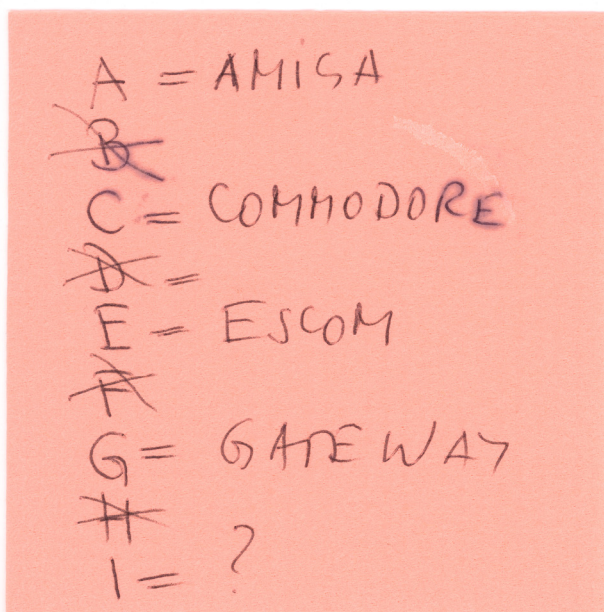 A = AMIGA
B
C = COMMODORE
D =
E = ESCOM
F
G = GATEWAY
H
I = ?